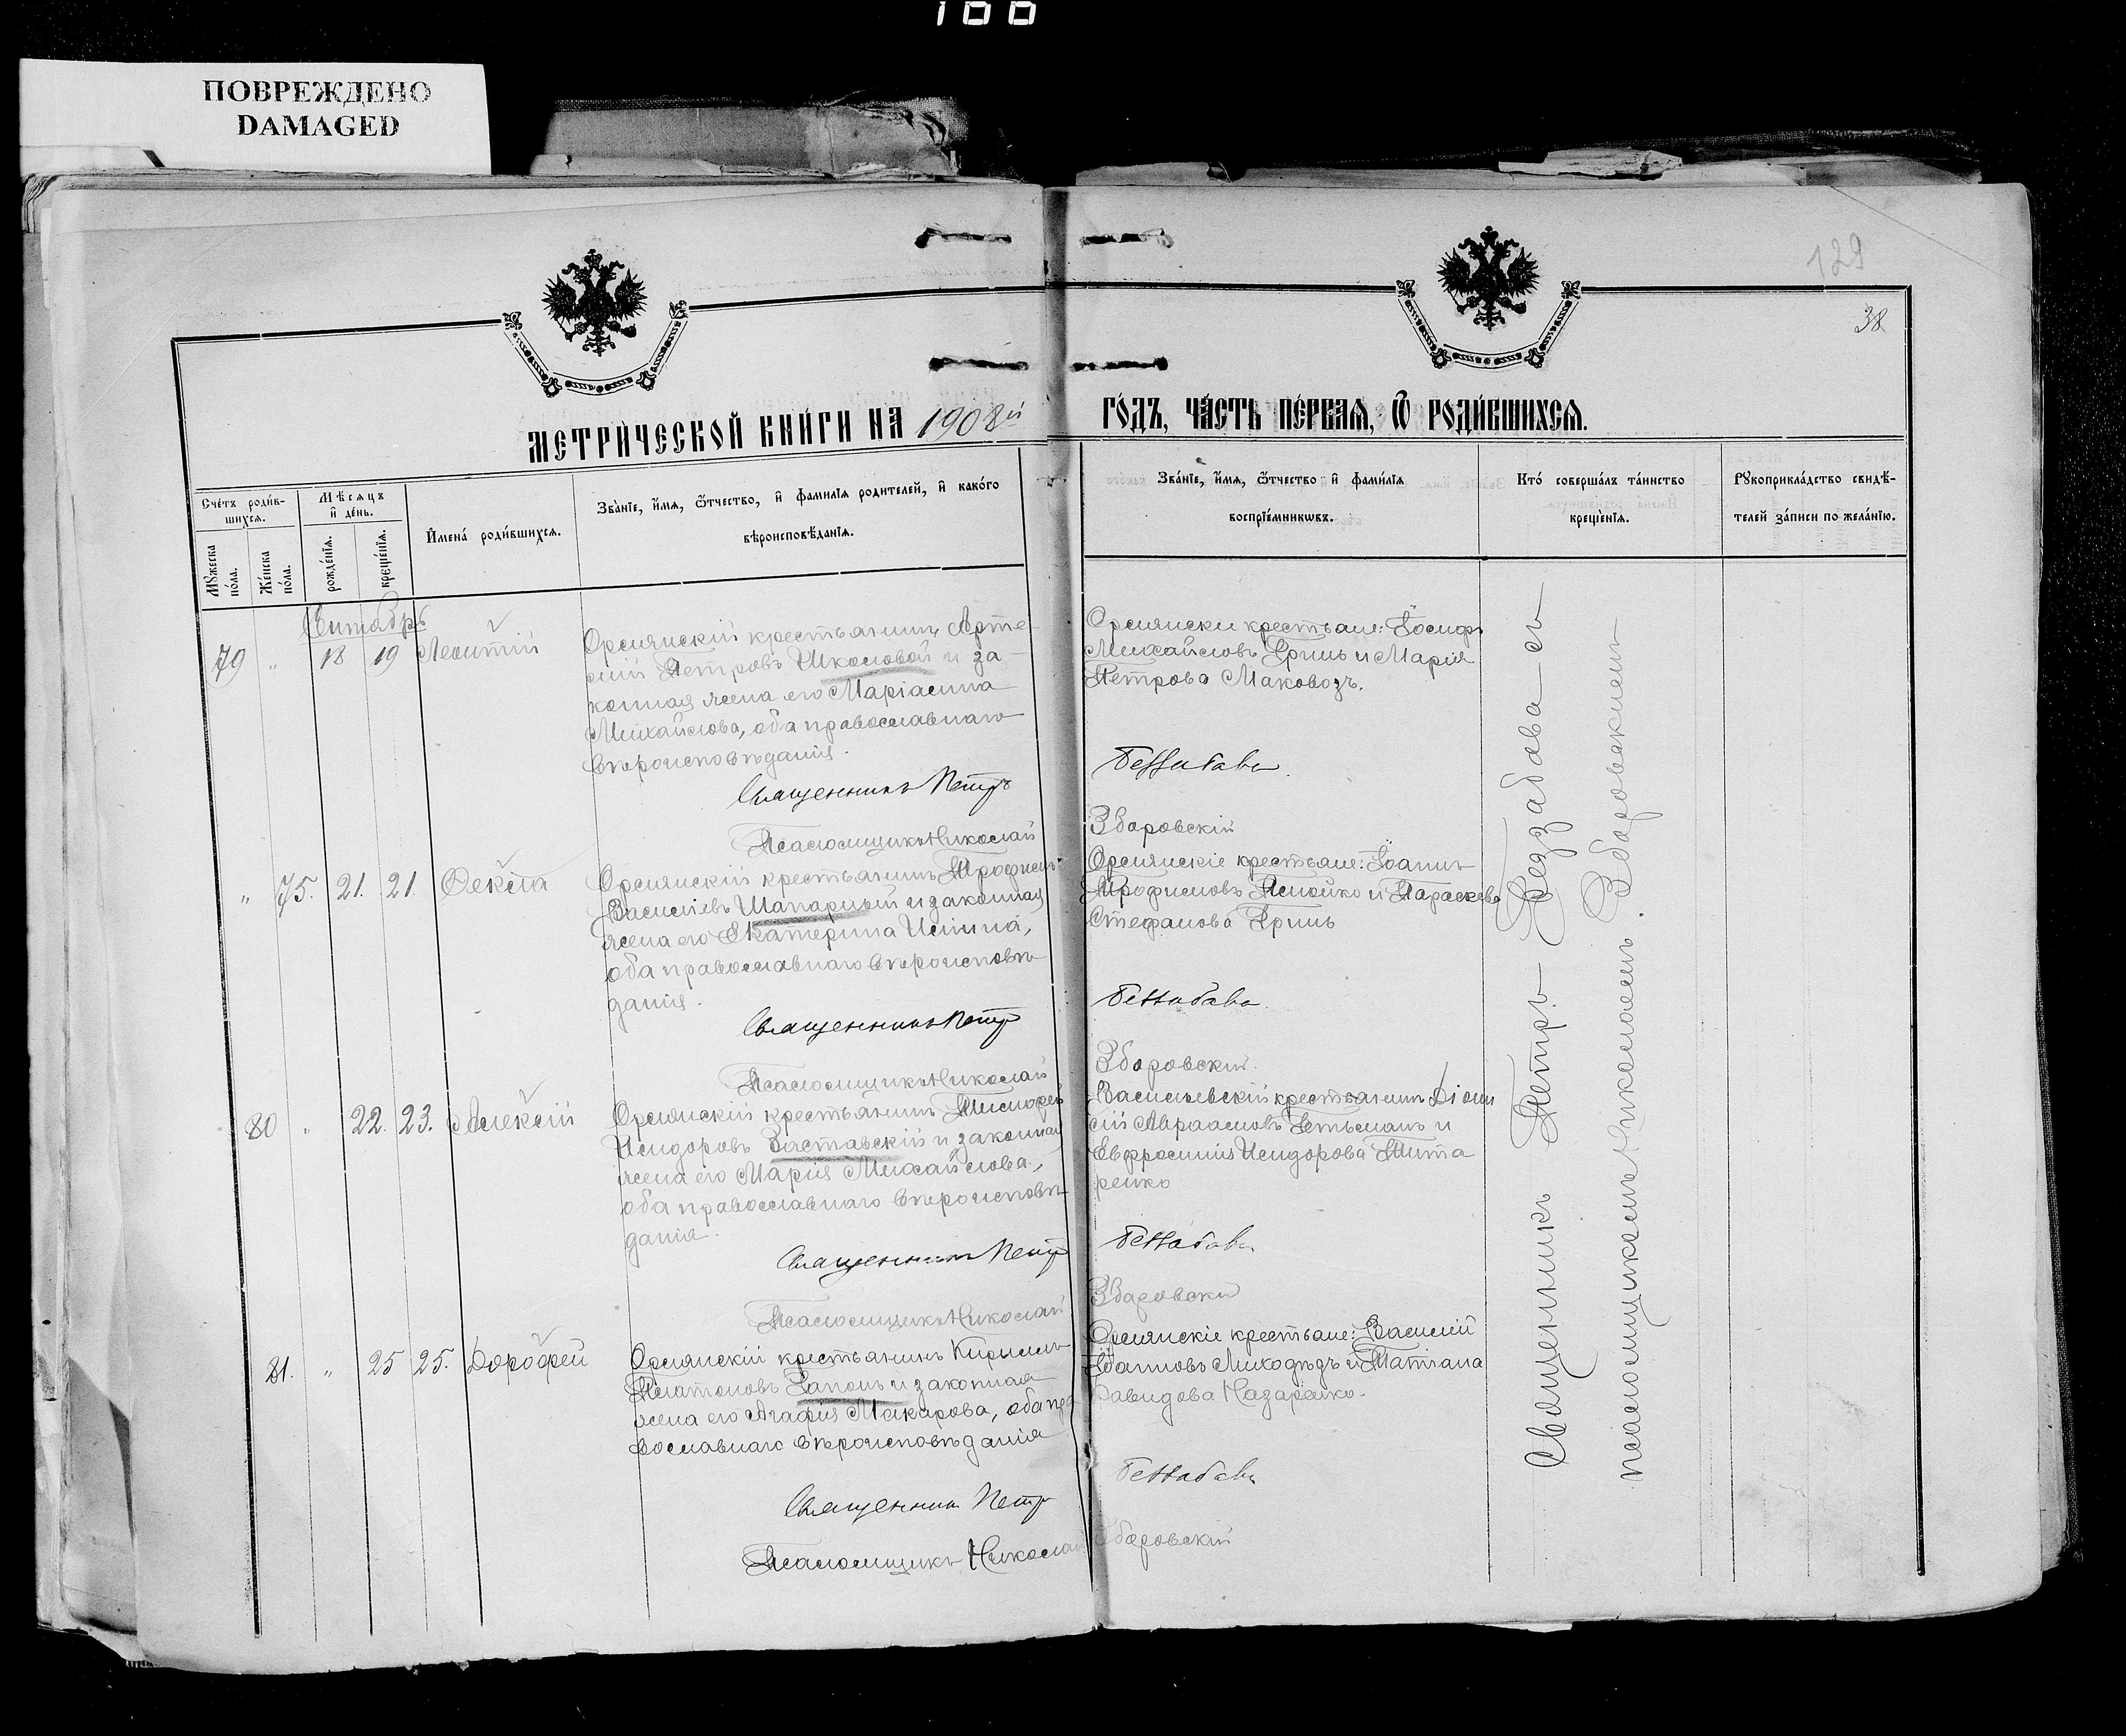 188
ПОВРЕЖДЕНО
DAMAGED
129
38
МЕТРИ́ЧЕСКОЙ КНИ́ГИ НА 1908й
ГО́ДЪ, ЧА́СТЬ ПЕ́РВАЯ, Ѿ РОДИ́ВШИХСЯ.
Сче́тъ роди́в-
шихся.
Мꙋ́жеска по́ла.
Же́нска по́ла.
Мѣ́сяцъ
и҆ де́нь.
рожде́нїя.
креще́нїя.
И҆мена̀ роди́вшихся.
Зва́нїе, и҆́мя, ѻ҆́тчество, и҆ фами́лїя роди́телей, и҆ како́го
вѣроисповѣ́данїя.
Зва́нїе, и҆́мя, ѻ҆́тчество и҆ фами́лїя
воспрїе́мникѡвъ.
Кто̀ соверша́лъ та́инство
креще́нїя.
Рꙋкоприкла́дство свидѣ́-
телей за́писи по жела́нїю.
Сентябрь
79 " 18 19 Леонтій
Орлянскій крестьянинъ Арте-
мій Петровъ Школовой и за-
конная жена его Маріамна
Михайлова, оба православнаго
вѣроисповѣданія.
Священникъ Петръ
Псаломщикъ Николай
Орлянскіе крестьяне: Іосифъ
Михайловъ Гринь и Марія
Петрова Маковозъ.
Беззабава
Збаровскій
" 75. 21. 21. Ѳекла
Орлянскій крестьянинъ Трофимъ
Василіевъ Шапарный и законная
жена его Екатерина Ильина,
оба православнаго вѣроисповѣ-
данія.
Священникъ Петръ
Псаломщикъ Николай
Орлянскіе крестьяне: Іоаннъ
Трофимовъ и Параскева
Стефанова Гринь
Беззабава.
Збаровскій.
80 " 22. 23. Алексій
Орлянскій крестьянинъ
Исидоровъ Заставскій и законная
жена его Марія Михайлова,
оба православнаго вѣроисповѣ-
данія.
Священникъ Петръ
Псаломщикъ Николай
Васильевскій крестьянинъ Діони
сій Авраамовъ Гетьманъ и
Евфросинія Исидорова Тита
ренко
Беззабава
Збаровскій
81. " 25 25. Дороѳей
Орлянскій крестьянинъ Кириллъ
Платоновъ Гапонъ и законная
жена его Агафія Макарова, оба пра
вославнаго вѣроисповѣданія
Священникъ Петръ
Псаломщикъ Николай
Орлянскіе крестьяне: Василій
Іоанновъ и Татіана
Давидова Назаренко.
Беззабава
Збаровскій
Священникъ Петръ Беззабава съ
псаломщикомъ Николаемъ Збаровскимъ.